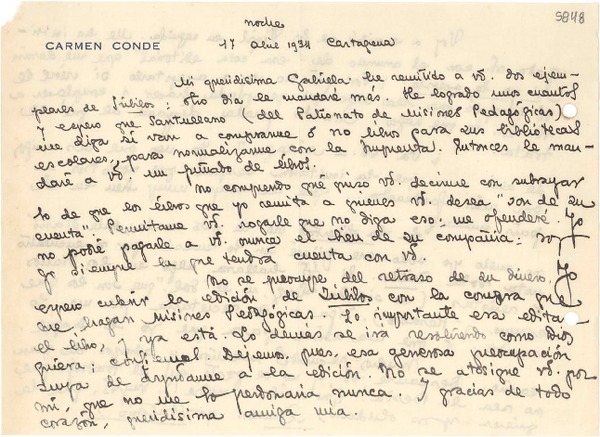 5848
noche
CARMEN CONDE
17 Abre 1934 Cartagena
Mi queridísima Gabriela: he remitido a vd. dos ejem-
plares de Júbilos; otro día le mandaré más. He logrado unos cuantos
y espero que Santullano (del Patronato de Misiones Pedagógicas)
me diga si van a comprarme ó no libros para sus bibliotecas
escolares, para normalizarme con la imprenta. Entonces le man-
daré a vd. un puñado de libros.
No comprendo qué quiso vd. decirme con subrayar
lo de que los libros que yo remita a quienes vd. desea "son de su
cuenta". Permítame vd. rogarle que no diga eso: me ofenderé. Yo
no podré pagarle a vd. nunca el bien de su compañía: soy
yo siempre la que tendrá cuenta con vd.
No se preocupe del retraso de su dinero. Yo
espero cubrir la edición de Júbilos con la compra que
me hagan Misiones Pedagógicas. Lo importante era editar
el libro, y ya está. Lo demás se irá resolviendo como Dios
quiera; confiemos. Dejemos, pues, esa generosa preocupación
suya de ayudarme a la edición. No se atosigue vd. por
mí, que no me lo perdonaría nunca. Y gracias de todo
corazón, queridísima amiga mía.